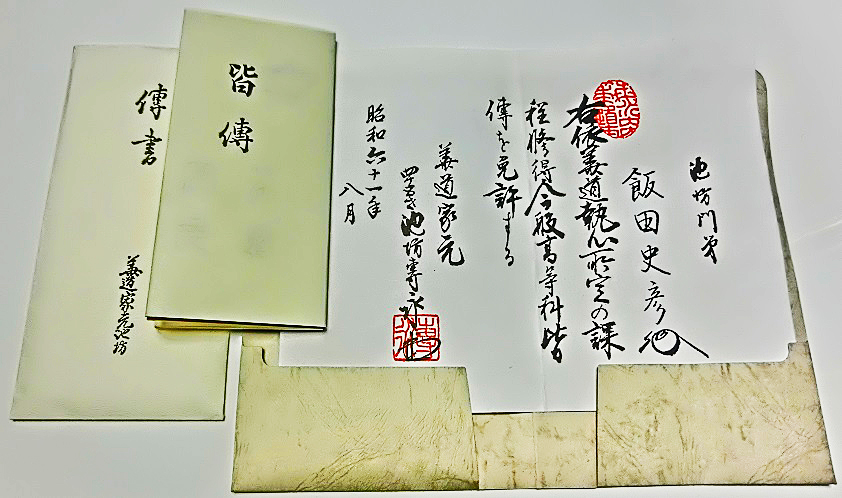 池坊門弟
飯田史彦殿
右依華道執心所定の課
程修得今般高等科皆
傳を免許する
華道家元
四十五世池坊專永
昭和六十一年
八月
皆傳
傳書
華道家元池坊